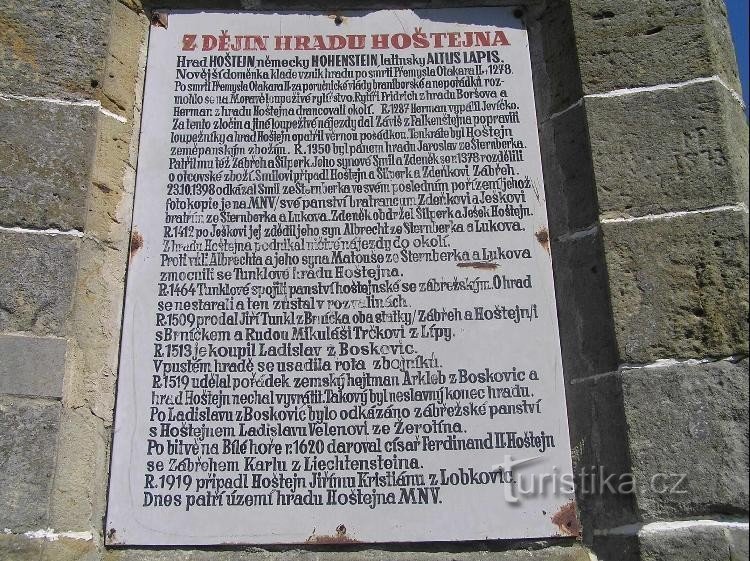 Z DĚJIN HRADU HOŠTEJNA
Hrad HOŠTEJN, německy HOHENSTEIN, latinsky ALTUS LAPIS.
Novější doměnka klade vznik hradu po smrti Přemysla Otakara II. r. 1278.
Po smrti Přemysla Otakara II. za poručnické vlády braniborské a neopatrné roz-
mohlo se na Moravě loupeživé rytířstvo. Rytíři Fridrich z hradu Boršova a
Herman z hradu Hoštejna drancovali okolí. R. 1287 Herman vypálil Jevíčko.
Za tento zločin a jiné loupeživé nájezdy dal Záviš z Falkenštejna popraviti
loupežníky a hrad Hoštejn opatřil věrnou posádkou. Tenkráte byl Hoštejn
zeměpanským zbožím. R. 1350 byl pánem hradu Jaroslav ze Šternberka.
Patřil mu též Zábřeh a Šilperk. Jeho synové Smil a Zdeněk se r. 1378 rozdělili
o otcovské zboží. Smilovi připadl Hoštejn a Šilperk a Zdeňkovi Zábřeh.
23.10.1398 odkázal Smil ze Šternberka ve svém posledním pořízení, jehož
fotokopie je na MNV/ své panství bratrancům Zdeňkovi a Ješkovi
bratřím ze Šternberka a Lukova. Zdeněk obdržel Šilperk a Ješek Hoštejn.
R. 1412 po Ješkovi jej zdědil jeho syn Albrecht ze Šternberka a Lukova.
Z hradu Hoštejna podnikal ničivé nájezdy do okolí.
Proti vůli Albrechta a jeho syna Matouše ze Šternberka a Lukova
zmocnili se Tunklové hradu Hoštejna.
R. 1464 Tunklové spojili panství hoštejnské se zábřežským. O hrad
se nestarali a ten zůstal v rozvalinách.
R. 1509 prodal Jiří Tunkl z Brníčka oba statky / Zábřeh a Hoštejn / i
s Brníčkem a Rudou Mikuláši Trčkovi z Lípy.
R. 1513 je koupil Ladislav z Boskovic.
V pustém hradě se usadila rota zbojníků.
R. 1519 udělal pořádek zemský hejtman Arkleb z Boskovic a
hrad Hoštejn nechal vyvrátit. Takový byl neslavný konec hradu.
Po Ladislavu z Boskovic bylo odkázáno zábřežské panství
s Hoštejnem Ladislavu Velenovi ze Žerotína.
Po bitvě na Bílé hoře r. 1620 daroval císař Ferdinand II. Hoštejn
se Zábřehem Karlu z Liechtensteina.
R. 1919 připadl Hoštejn Jiřímu Kristiánu z Lobkovic.
Dnes patří území hradu Hoštejna MNV.
turistika.cz